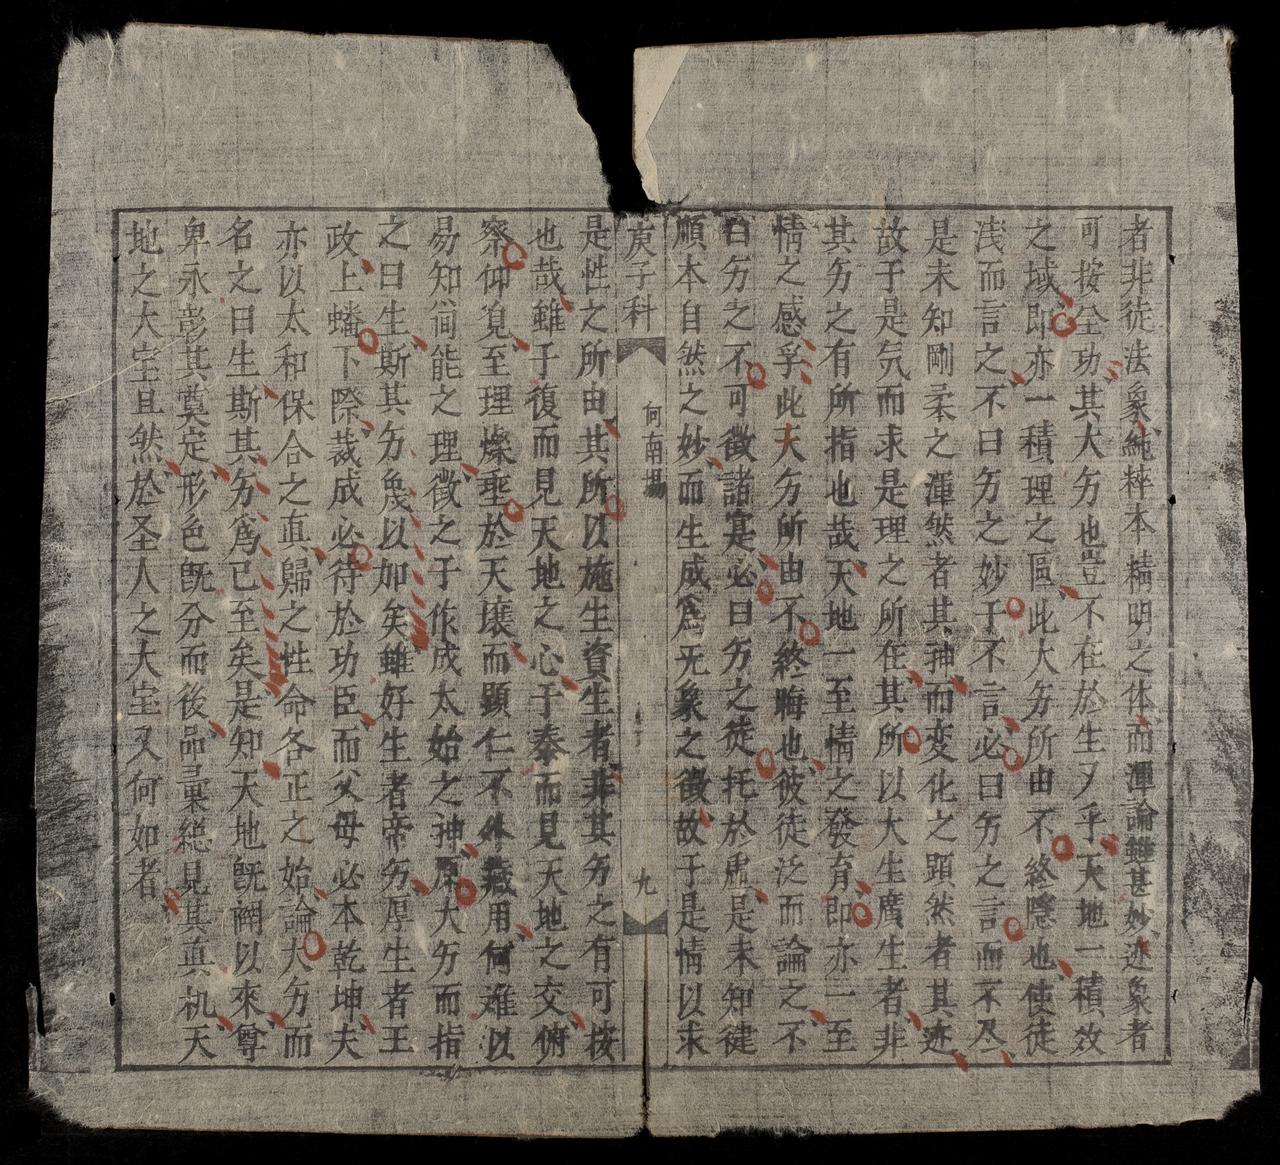 者非徒法象純粹本精明之体而渾論雖甚妙迹象者
可按全功其大分也豈不在於生又乎天地一積效
之域即亦一積理之區此大分所由不終隱也使徒
浅而言之不曰分之妙于不言必曰分之言而不尽
是未知剛柔之渾然者其神而变化之顕然者其迹
故于是気而求是理之所在其所以大生廣生者非
其分之有所指也哉天地一至情之發育即亦一至
情之感孚此大分所由不終晦也彼徒泛而論之不
曰分之不可徴諸寔必曰分之徒托於虚是未知健
順本自然之妙而生成爲无象之徴故于是情以求
庚子科 何南場 九
是性之所由其所以施生資生者非其分之有可按
也哉雖于復而見天地之心于泰而見天地之交俯
察仰覓至理燦垂於天壤而顕仁不外藏用何难以
易知简能之理徴之于作成太始之神原大分而指
之曰生斯其分蔑以加矣雖好生者帝分厚生者王
政上蟠下際裁成必待於功臣而父母必本乾坤夫
亦以太和保合之真歸之性命各正之始論大分而
名之曰生斯其分爲已至矣是知天地旣闢以來尊
卑永彰其奠定形色旣分而後品彙総見其真机天
地之大宝且然於圣人之大宝又何如者